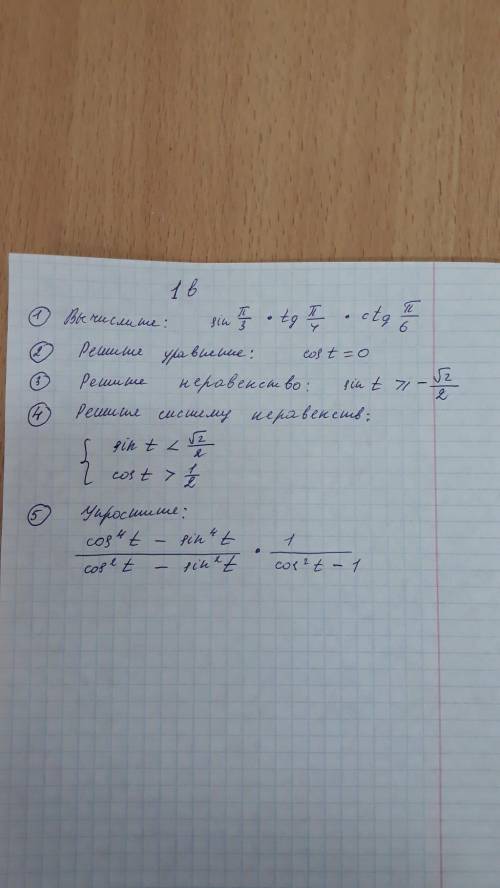 1в
① Вычислите: sin π/3 • tg π/4 • ctg π/6
② Решите уравнение: cos t = 0
③ Решите неравенство: sin t ⩾ -√2/2
④ Решите систему неравенств:
{ sin t < √2/2
cos t > 1/2
⑤ Упростите:
(cos⁴t − sin⁴t)/(cos²t − sin²t) • 1/(cos²t − 1)